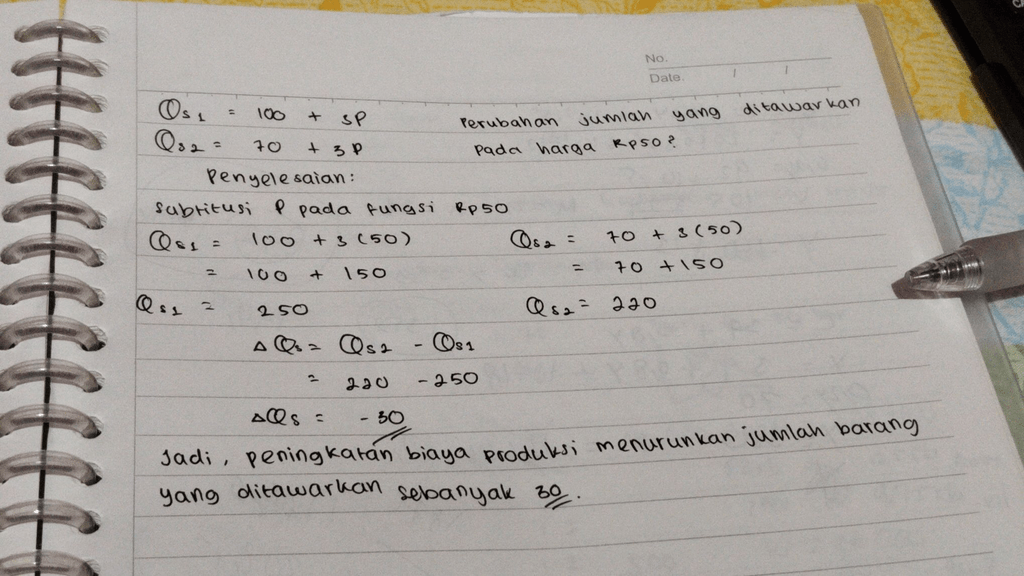 No.
Date. / /
Qs1 = 100 + 3P Perubahan jumlah yang ditawarkan
Qs2 = 70 + 3P pada harga Rp50?
Penyelesaian:
Subtitusi P pada fungsi Rp50
Qs1 = 100 + 3 (50) Qs2 = 70 + 3 (50)
= 100 + 150 = 70 + 150
Qs1 = 250 Qs2 = 220
△ Qs = Qs2 - Qs1
= 220 - 250
△Qs = - 30
Jadi, peningkatan biaya produksi menurunkan jumlah barang
yang ditawarkan sebanyak 30.